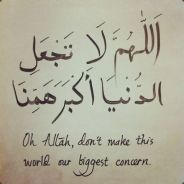 اَللَّهُمَّ لَا تَجْعَلِ
الدُّنْيَا أَكْبَرَ هَمِّنَا
Oh Allah, don't make this
world our biggest concern.